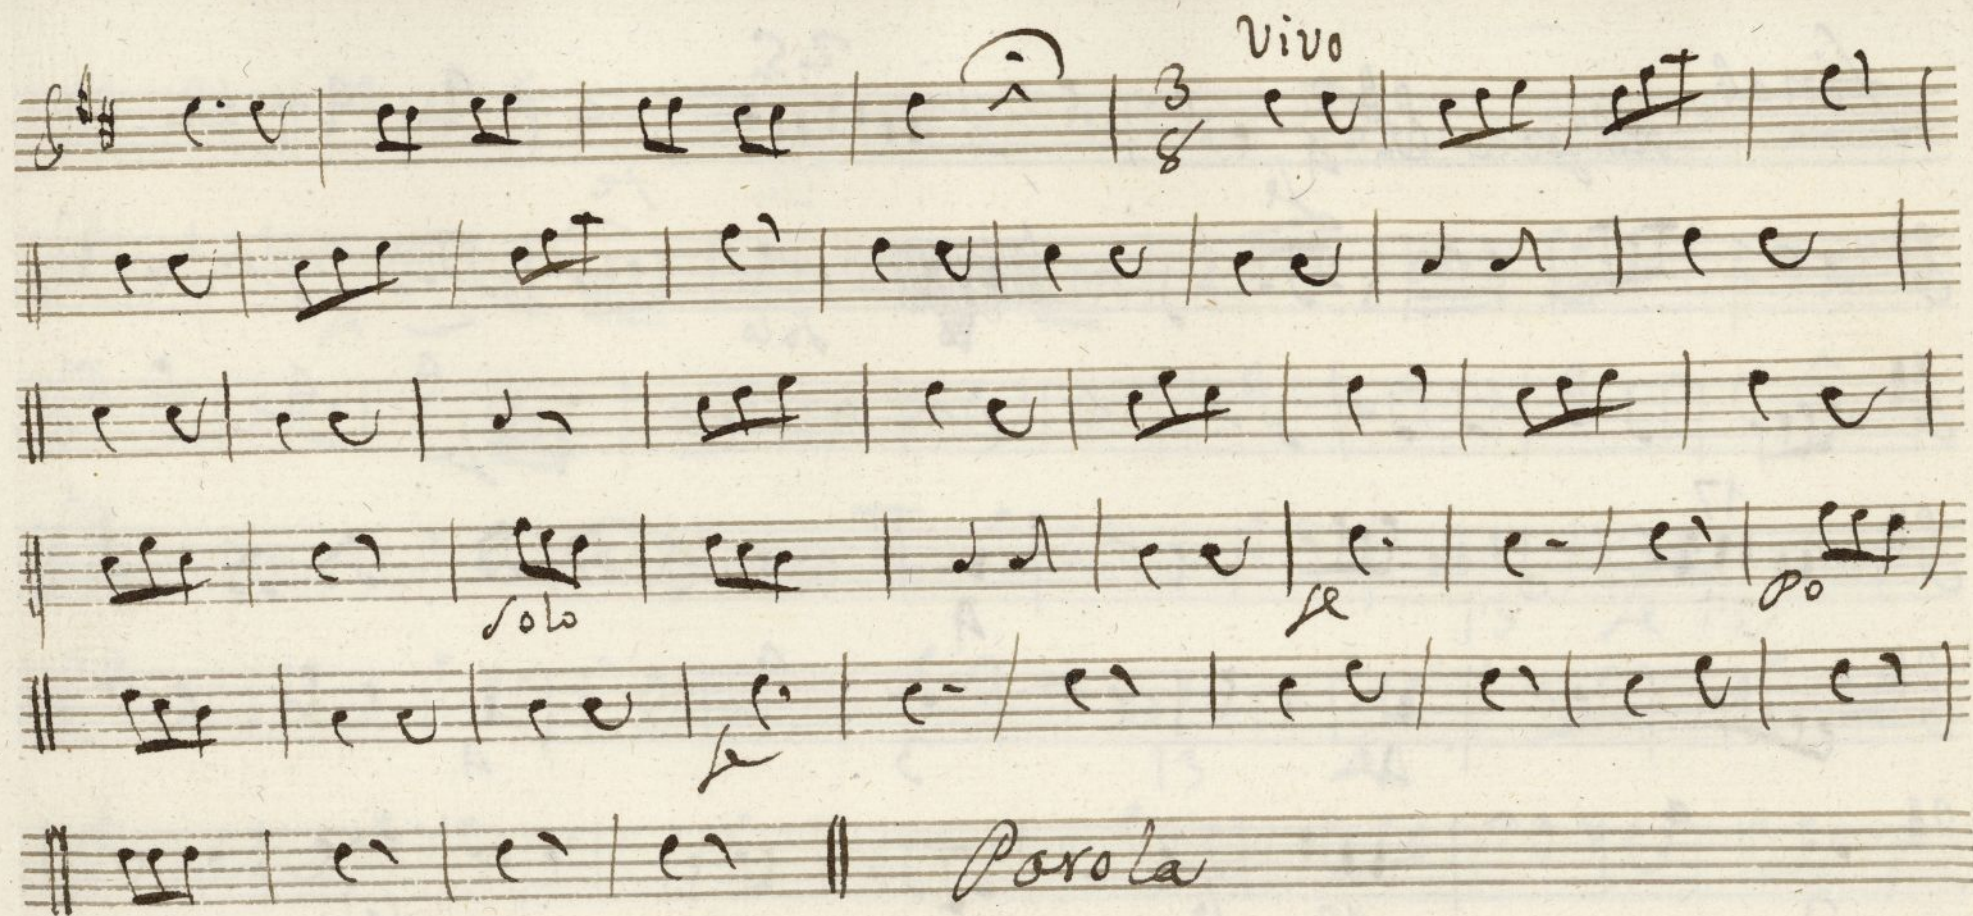 Vivo
3
8
solo
fe
Po
fe
Parola